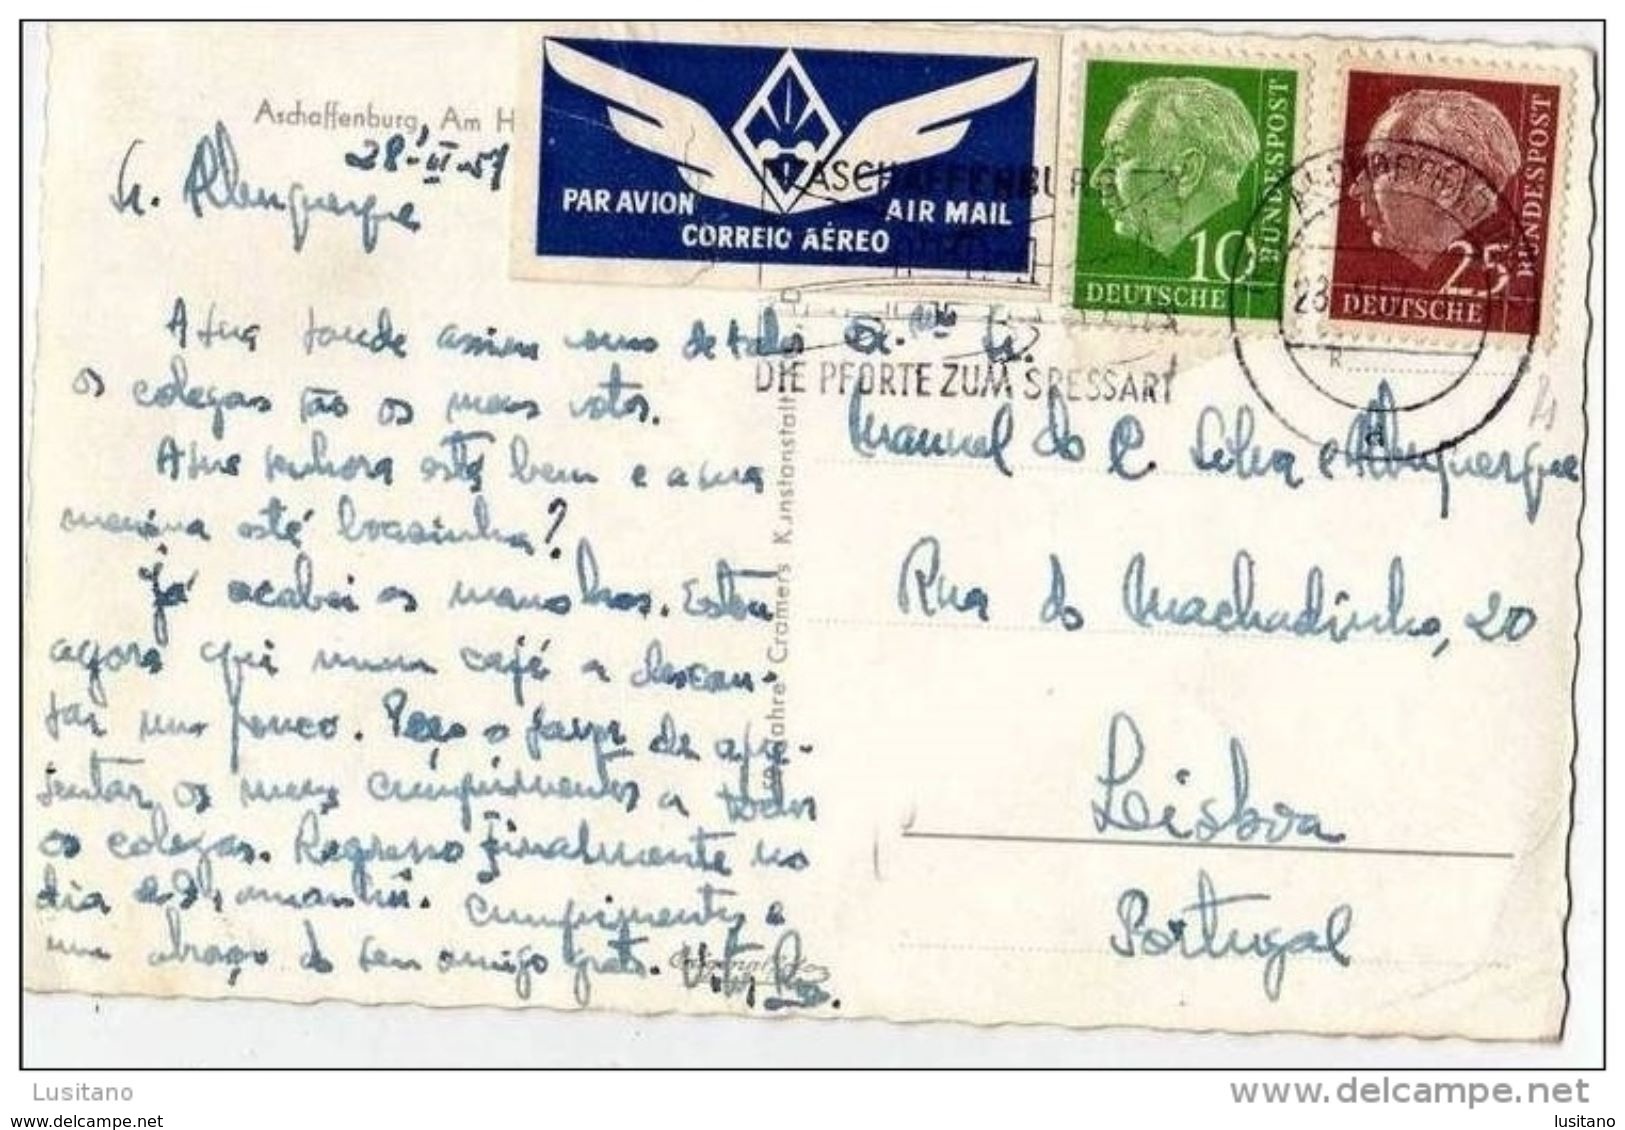 Aschaffenburg, Am H
28-II-57
Sr. Albuquerque
PAR AVION
AIR MAIL
CORREIO AÉREO
10
DEUTSCHE
BUNDESPOST
25
DEUTSCHE
BUNDESPOST
ASCHAFFENBURG
DIE PFORTE ZUM SPESSART
A sua saude assim como de todos
os colegas são os meus votos.
A sua senhora está bem e a sua
menina está boasinha?
Já acabei os trabalhos. Estou
agora aqui num café a descan-
sar um pouco. Peço o favor de apre-
sentar os meus cumprimentos a todos
os colegas. Regresso finalmente no
dia amanhã. Cumprimentos e
um abraço do seu amigo grato.
Jahre Cramers Kunstanstalt
Manuel da C. Silva e Albuquerque
Rua do Machadinho, 20
Lisboa
Portugal
Lusitano
www.delcampe.net
lusitano
lusitano